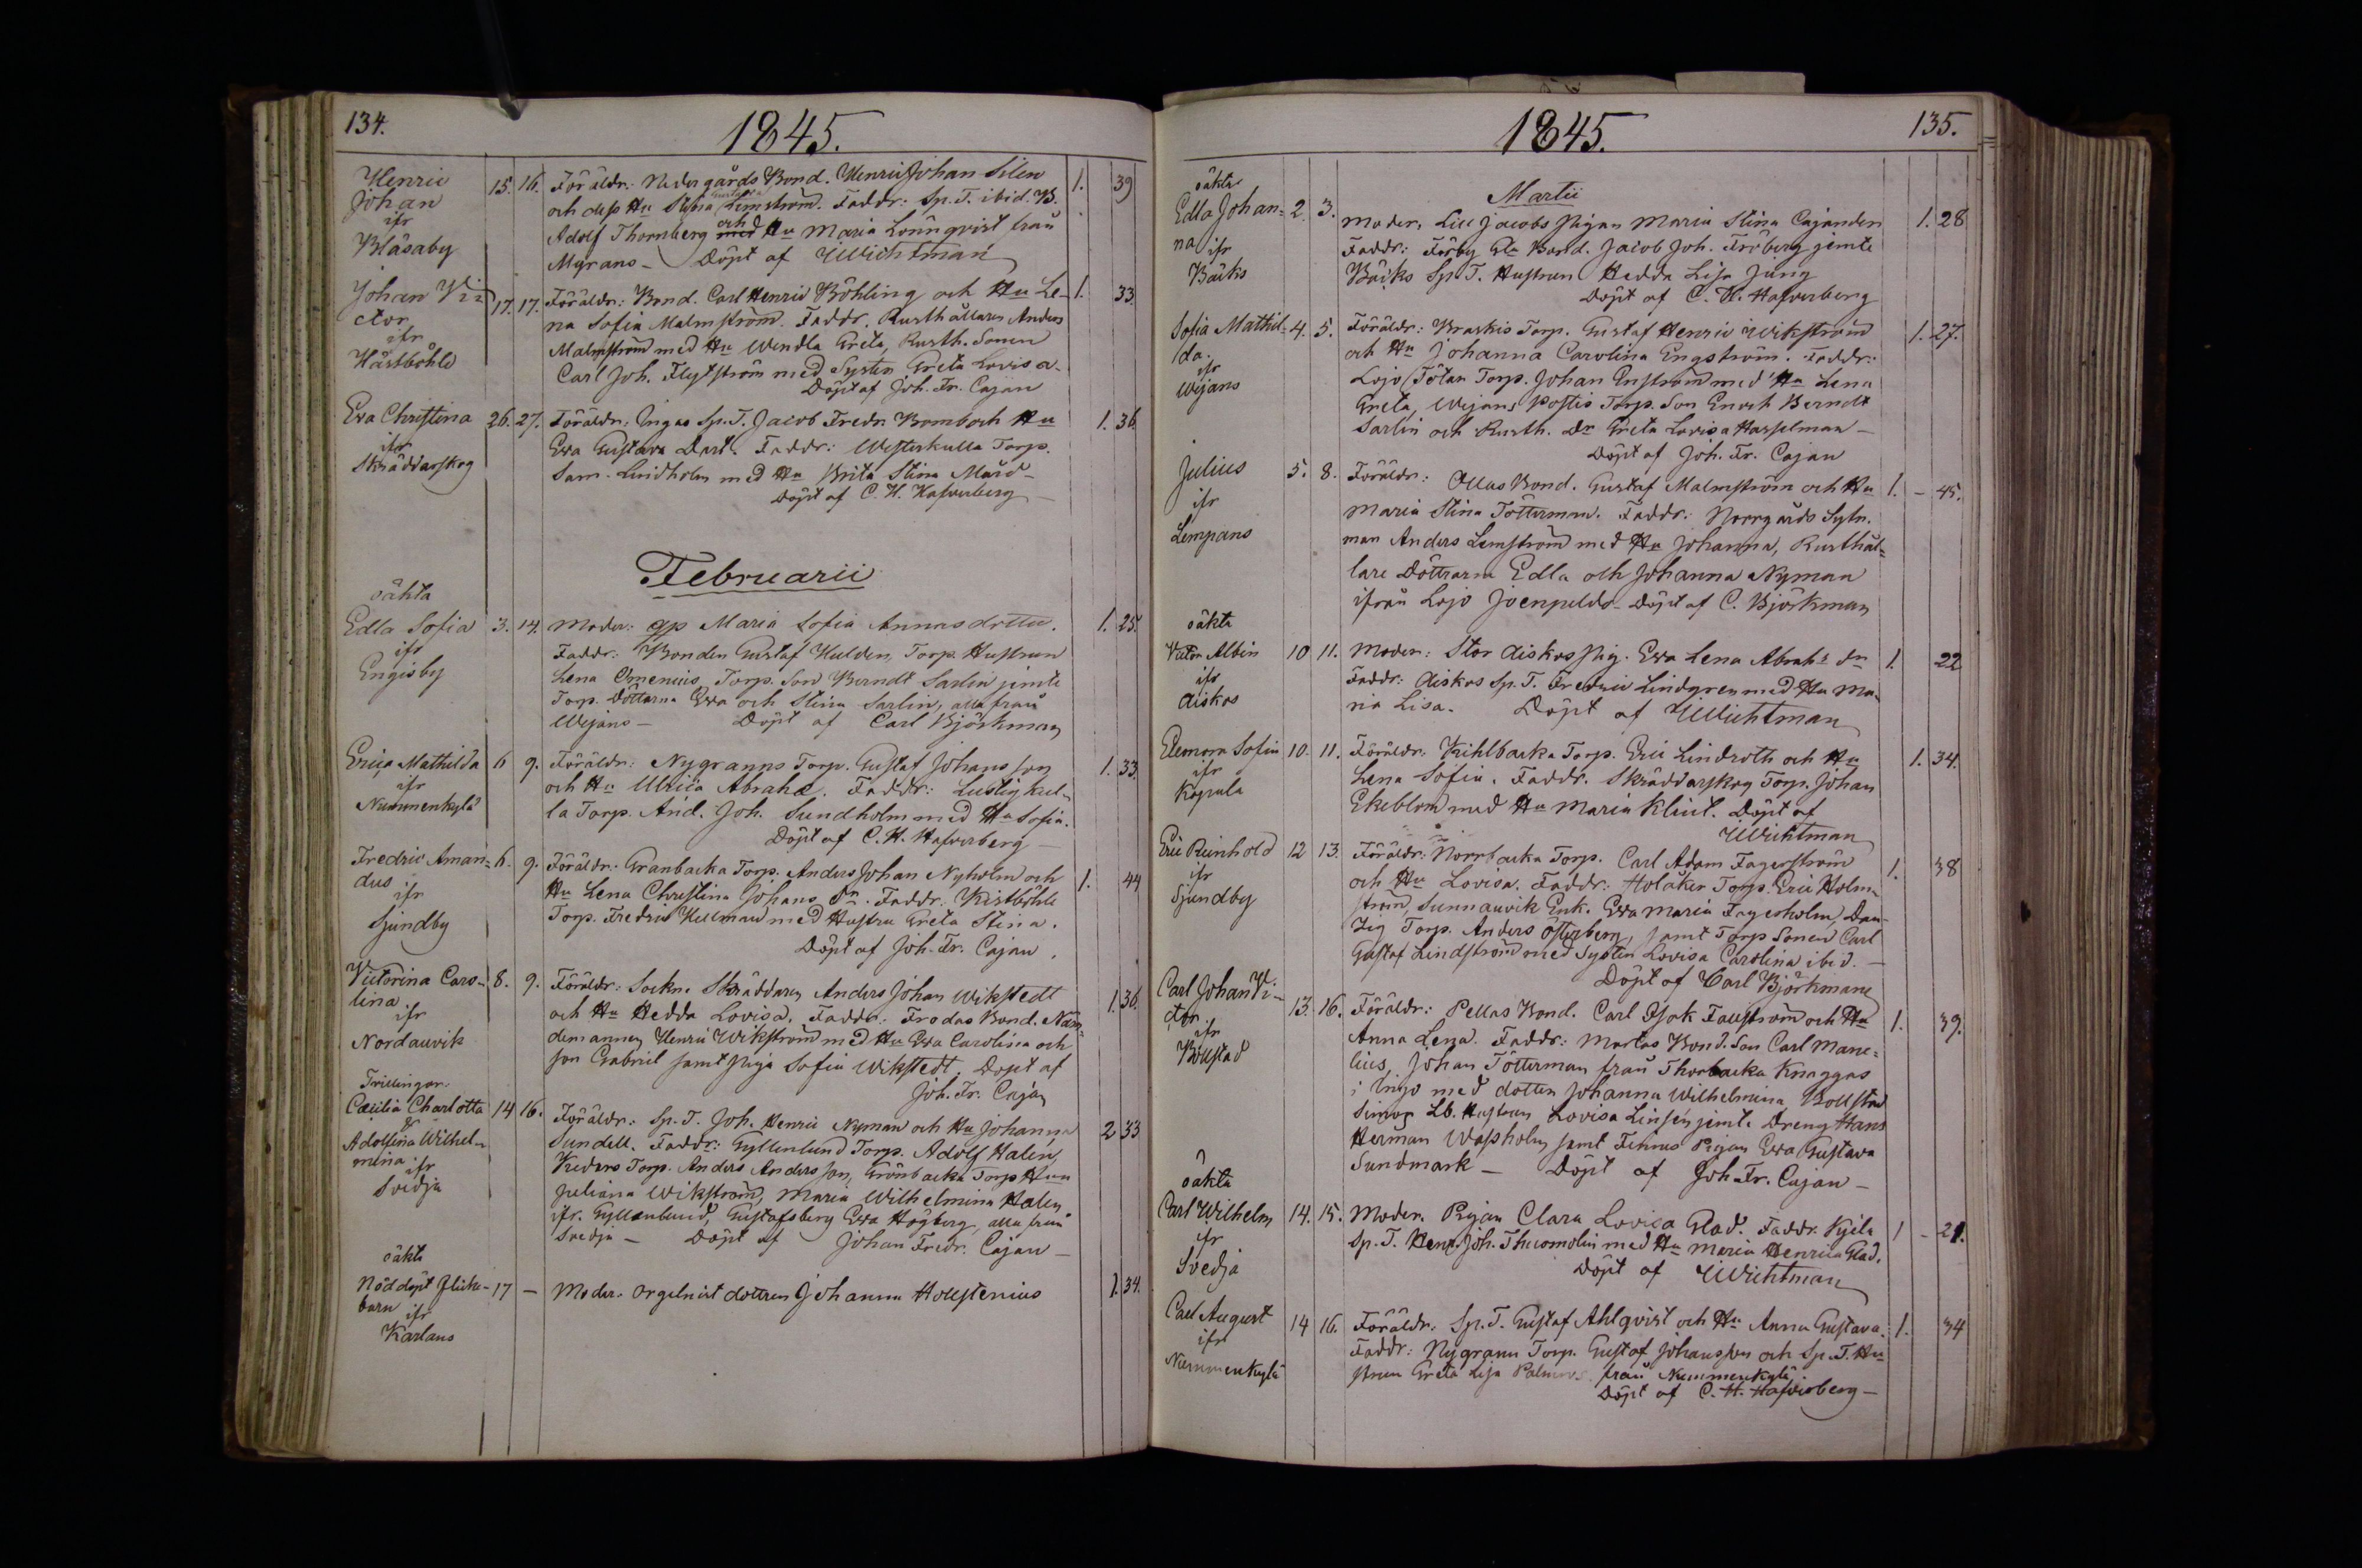 134.
1845.
Henric
Johan
ifr
Bläsaby
15. 16. Föräldr: Nedergårds Bond. Henric Johan Silen 1. 39
och dess Hu Stina Gustava Lemström. Faddr: Sp. T. ibid. B.
Adolf Thornberg med och Hu Maria Lönnqvist från
Myrans – Döpt af Wichtman
Johan Vi-
ctor
ifr
Hästböhle
17. 17. Föräldr: Bond. Carl Henric Böhling och Hu Le- 1. 33.
na Sofia Malmström. Faddr. Rusthållaren Anders
Malmström med Hu Wendla Greta, Rusth. Sonen
Carl Joh. Flytström med Systen Greta Lovisa.
Döpt af Joh. Fr. Cajan
Eva Christina
ifr
Skräddarskog
26. 27. Föräldr: Ingas Sp. T. Jacob Fredr Bomb och Hu 1. 36.
Eva Gustava Dart. Faddr: Westerkulla Torp.
Sam. Lindholm med Hu Brita Stina Mård –
Döpt af C. H. Hafverberg –
Februarii
oäkta
Edla Sofia
ifr
Engisby
3. 14. Moder: gp Maria Sofia Annasdotter. 1. 25.
Faddr: Bonden Gustaf Hulden, Torp. Hustrun
Lena Omenius, Torp. Son Berndt Sarlin jemte
Torp. Döttarna Eva och Stina Sarlin, alla från
Wejans – Döpt af Carl Björkman
Erica Mathilda
ifr
Nummenkylä
6 9. Föräldr: Nygranns Torp. Gustaf Johansson 1. 33.
och Hu Ulrica Abrah. Faddr: Lustigkul-
la Torp. And. Joh. Sundholm med Hu Sofia.
Döpt af C. H. Hafverberg –
Fredric Aman-
dus
ifr
Sjundby
6. 9. Föräldr: Granbacka Torp. Anders Johan Nyholm och 1. 44
Hu Lena Christina Johans Dr. Faddr: Kistböhle
Torp. Fredric Hellman med Hustru Greta Stina.
Döpt af Joh. Fr. Cajan.
Victorina Caro-
lina
ifr
Nordanvik
8. 9. Föräldr: Sockne Skräddaren Anders Johan Wikstedt 1. 36.
och Hu Hedda Lovisa. Faddr: Frodas Bond. Näm-
demannen Henric Wikström med Hu Eva Carolina och
son Gabriel samt Piga Sofia Wikstedt. Döpt af
Joh. Fr. Cajan
Trillingar:
Cæcilia Charlotta
&
Adolfina Wilhel-
mina
ifr
Svedja
14 16. Föräldr: Sp. T. Joh. Henric Nyman och Hu Johanna 2 33
Sundell. Faddr: Gyllenlund Torp. Adolf Halén,
Torp. Anders Andersson, Grönbacka Torp Hun
Juliana Wikström, Maria Wilhelmina Halen
ifr. Gyllenlund, Gustafsberg Eva Högberg, alla från
Svedja – Döpt af Johan Fredr. Cajan –
oäkta
Nöddöpt flicke-
barn ifr
Karlans
17 – Moder. Orgelnist dottren Johanna Hollstenius 1. 34.
1845.
135.
Martii
oäkta
Edla Johan-
na
ifr
Bäcks
2. 3. Moder, Lill Jacobs Pigan Maria Stina Cajander 1. 28
Faddr: Färby Bond. Jacob Joh. Fröberg jemte
Bäcks Sp. T. Hustrun Hedda Lisa Jung
Döpt af C. H. Hafverberg
Sofia Mathil-
da.
ifr
Wejans
4. 5. Föräldr: Braskis Torp. Gustaf Henric Wikström 1. 27.
och Hu Johanna Carolina Engström. Faddr:
Lojo Tötar Torp. Johan Enström med Hu Lena
Greta, Wejans Postis Torp. Son Enoch Berndt
Sarlin och Rusth. Dr Greta Lovisa Hasselman –
Döpt af Joh. Fr. Cajan
Julius
ifr
Lempans
5. 8. Föräldr: Ollas Bond. Gustaf Malmström och Hu 1. – 45.
Maria Stina Tötterman. Faddr: Norrgårds Sytn.
man Anders Lemström med Hu Johanna, Rusthål-
lare Döttrarna Edla och Johanna Nyman
ifrån Lojo Joenpeldo – Döpt af C. Björkman
oäkta
Victor Albin
ifr
Aiskos
10 11. Moder: Stor Aiskos Pig. Eva Lena Abrahs dr 1. 22
Faddr: Aiskos Sp. T. Fredric Lindgren med Hu Ma-
ria Lisa. Döpt af Wichtman
Eleonora Sofia
ifr
Kopula
10. 11. Föräldr. Kihlbacka Torp. Eric Lindroth och Hu 1. 34.
Lena Sofia. Faddr. Skräddarskog Torp. Johan
Ekeblom med Hu Maria Klint. Döpt af
Wichtman
Eric Reinhold
ifr
Sjundby
12 13. Föräldr: Norrbacka Torp. Carl Adam Fagerström 1. 38
och Hu Lovisa. Faddr: Holåker Torp. Eric Holm-
ström, Sunnanvik Enk. Eva Maria Fagerholm, Dan-
zig Torp. Anders Österberg, samt Torp Sonen Carl
Gustaf Lindström med Systen Lovisa Carolina ibid. –
Döpt af Carl Björkman
Carl Johan Vi-
ctor.
ifr
Böllstad
13. 16. Föräldr: Pellas Bond. Carl Isak Fallström och Hu 1. 39.
Anna Lena. Faddr: Martas Bond. Son Carl Mane-
lius, Johan Tötterman från Thorbacka Knaggas
i Ingo med dotter Johanna Wilhelmina Bollstad
Simos Lb. Hustrun Lovisa Linsén jemte Dreng Hans
Herman Wassholm samt Finnus Pigan Eva Gustava
Sundmark – Döpt af Joh. Fr. Cajan –
oäkta
Carl Wilhelm
ifr
Svedja
14. 15. Moder. Pigan Clara Lovisa Glad. Faddr. Kjela 1 – 21.
Sp. T. Henr. Joh. Thuomolin med Hu Maria Henrica Glad.
Döpt af Wichtman
Carl August
ifr
Nummenkylä
14 16. Föräldr: Sp. T. Gustaf Ahlqvist och Hu Anna Gustava. 1. 34
Faddr: Nygrann Torp. Gustaf Johansson och Sp. T. Hu-
strun Greta Lisa Palmroos från Nummenkylä
Döpt af C. H. Hafverberg –